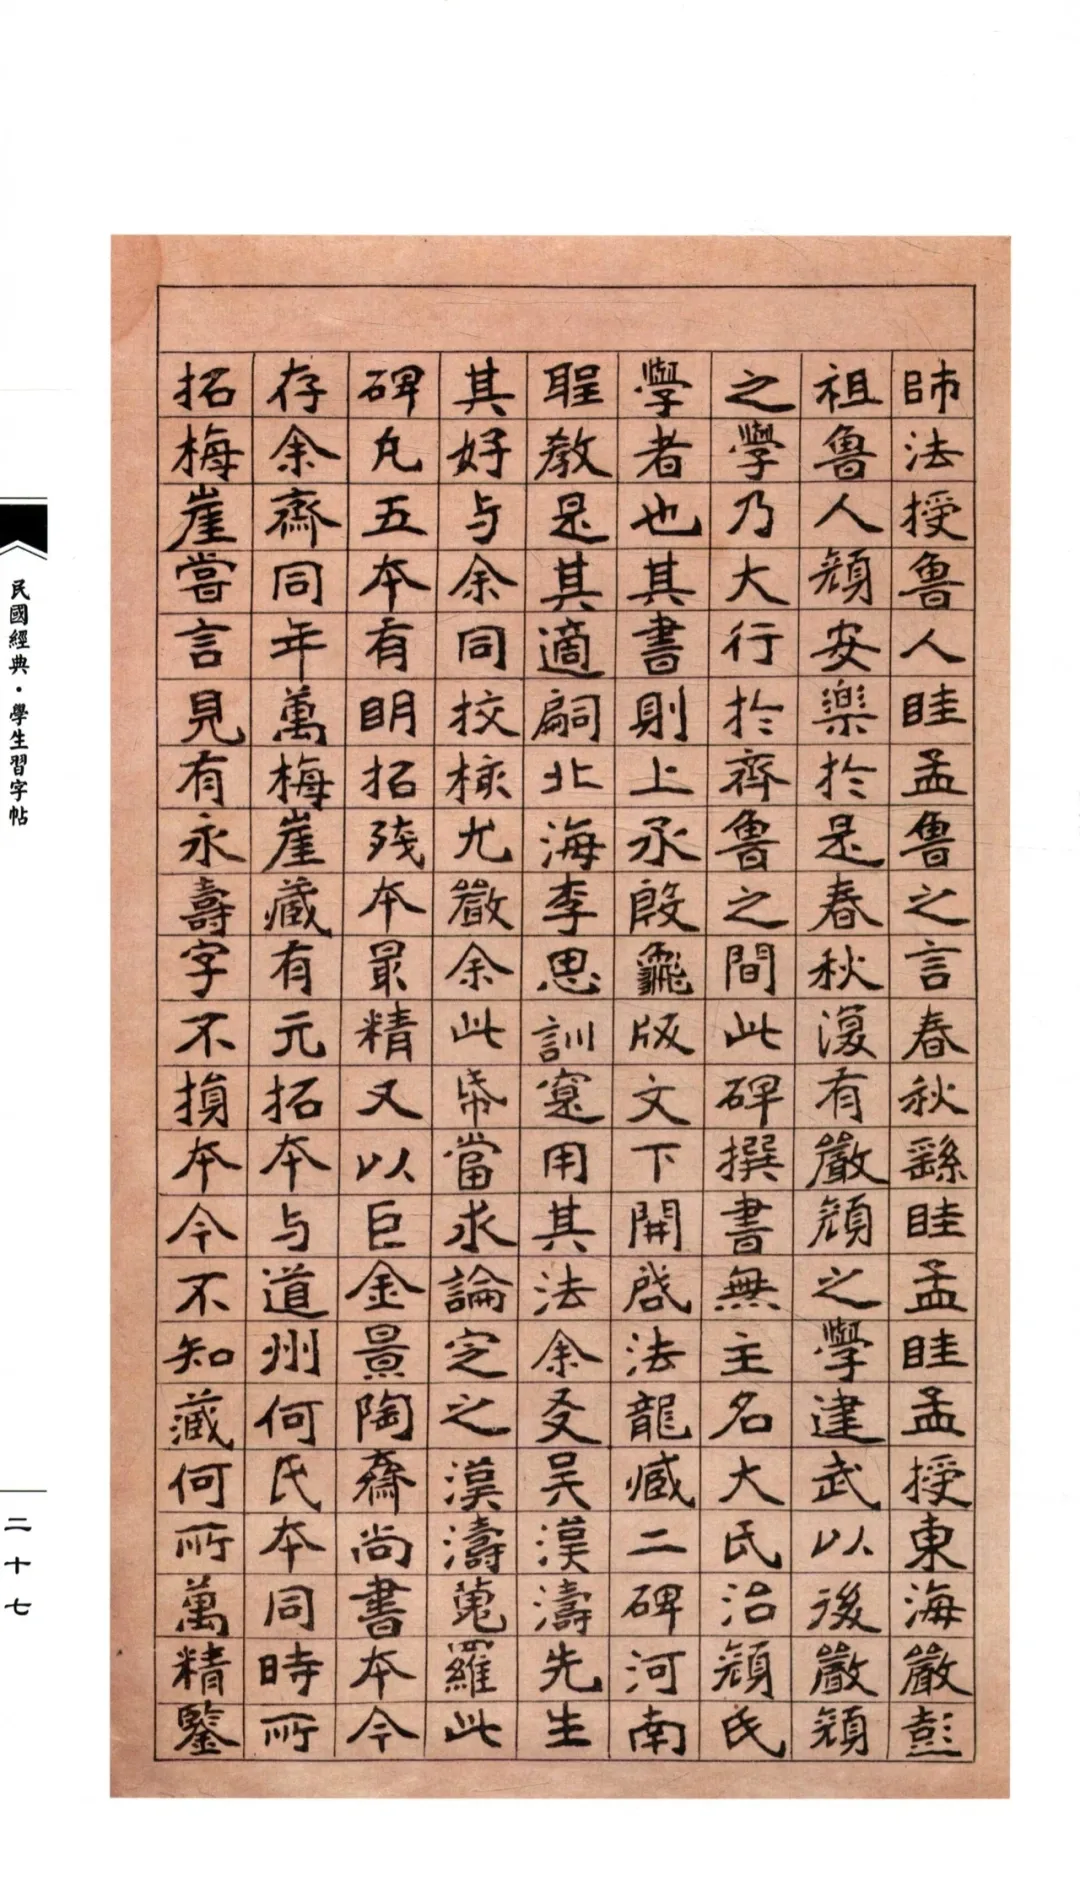 師法授魯人眭孟魯之言春秋繇眭孟眭孟授東海嚴彭
祖魯人顏安樂於是春秋復有嚴顏之學建武以後嚴顏
之學乃大行於齊魯之間此碑撰書無主名大氐治顏氏
學者也其書則上承殷龜版文下開啓法龍臧二碑河南
聖教是其適嗣北海李思訓寔用其法余友吳漢濤先生
其好与余同挍椽尤嚴余此帋當求論定之漢濤蒐羅此
碑凡五本有明拓殘本最精又以巨金景陶齋尚書本今
存余齋同年萬梅崖藏有元拓本与道州何氏本同時所
拓梅崖嘗言見有永壽字不損本今不知藏何所萬精鑒
民國經典·學生習字帖
二十七